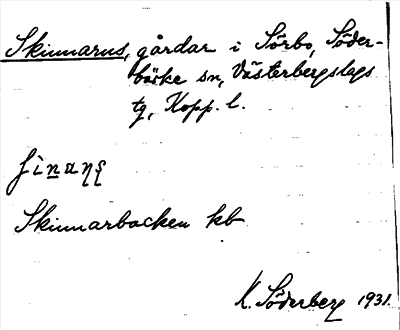 Skinnarus, gårdar i Sörbo, Söder-
bärke sn, Västerbergslags
tg, Kopp. l.
Skinnarbacken kb
K. Söderberg 1931.